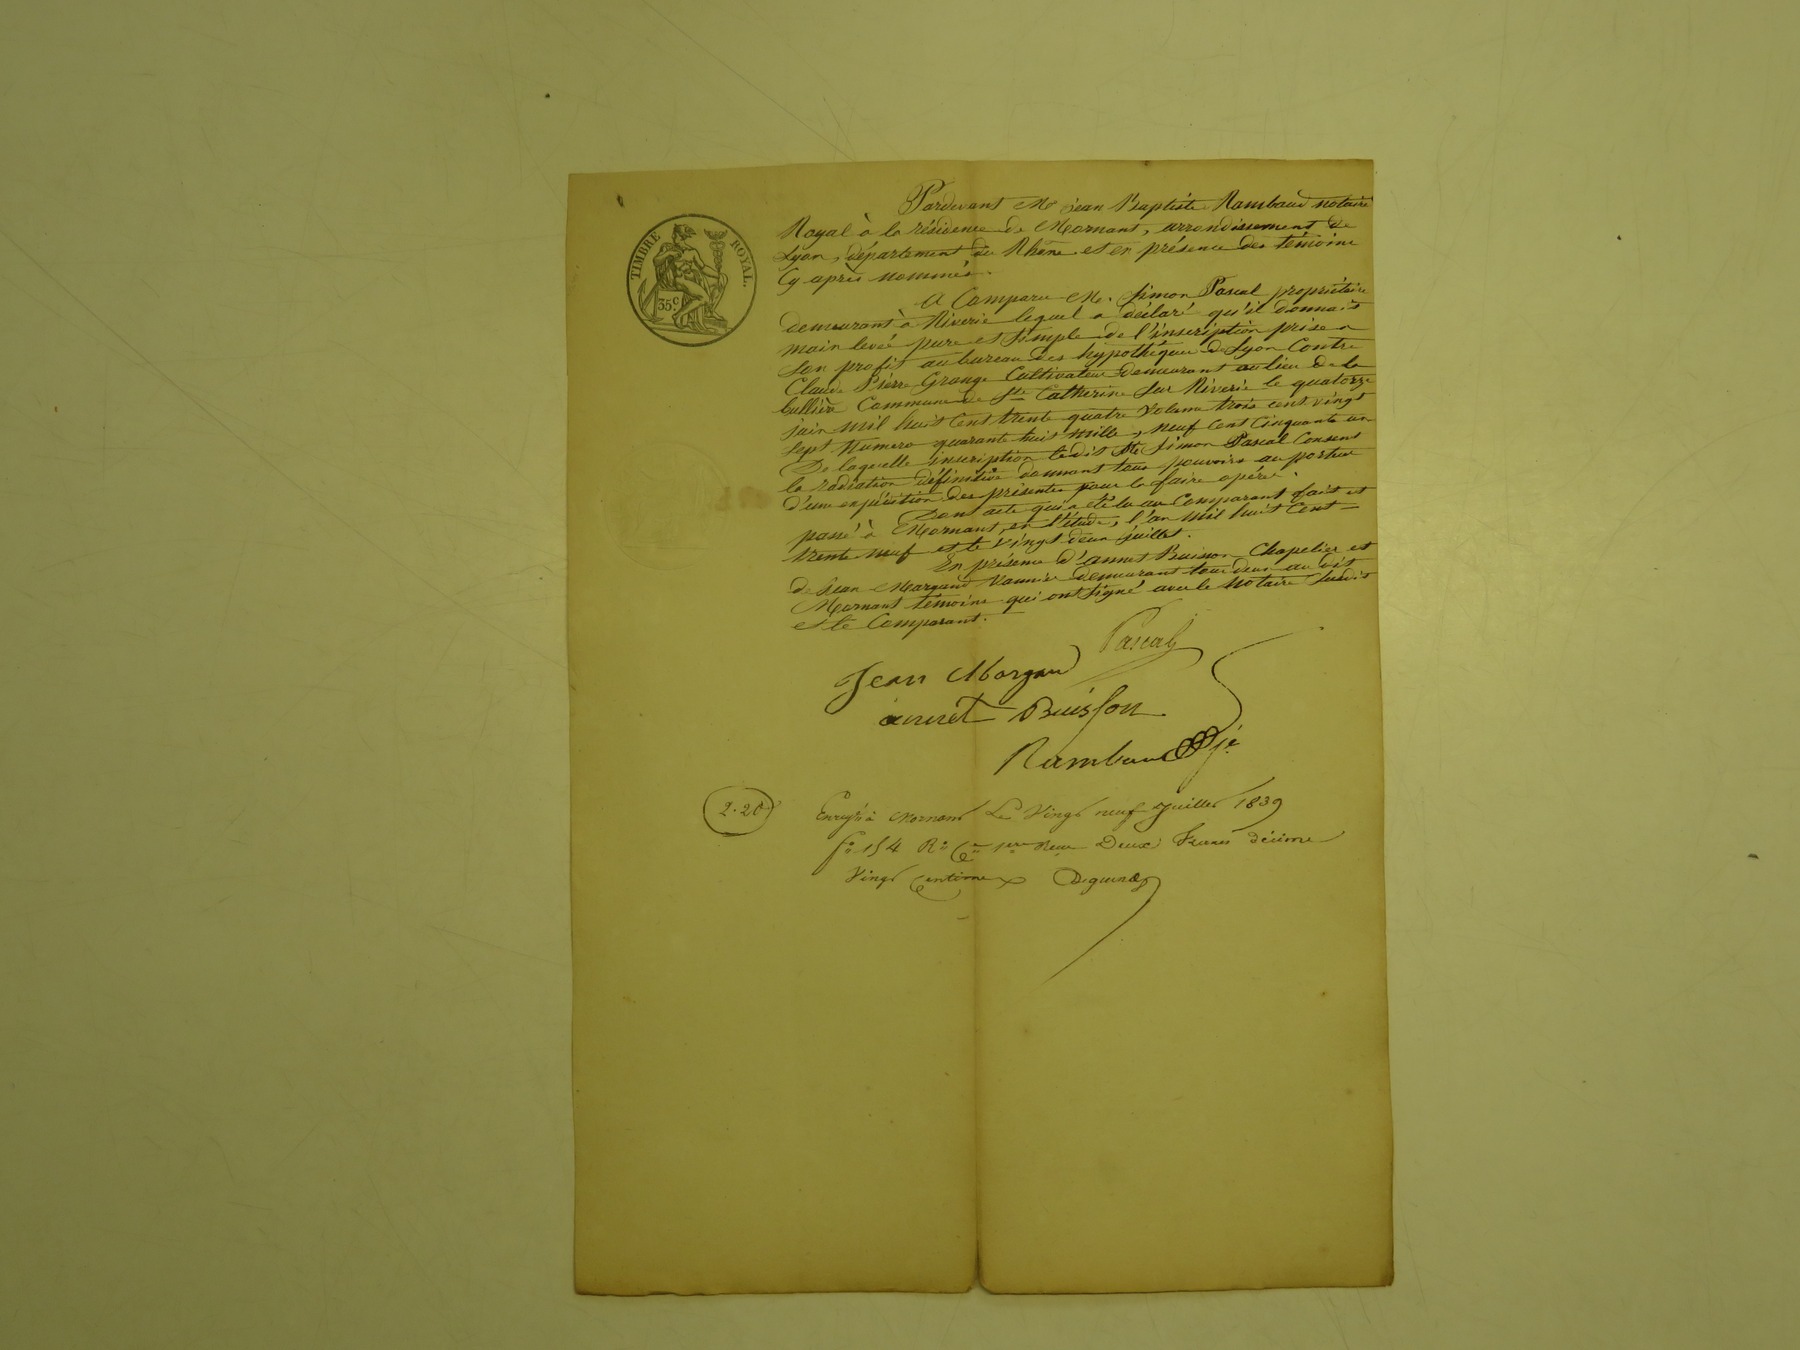 TIMBRE ROYAL.
35 c.
Pardevant Me Jean Baptiste Rambaud notaire
Royal à la résidence de Mornant, arrondissement de
Lyon, département du Rhône et en présence des témoins
Cy après nommés.
A Comparu Mr. Simon Pascal propriétaire
demeurant à Riverie lequel a déclaré qu'il donnait
main levée pure et simple de l'inscription prise a
son profit au bureau des hypothéques de Lyon Contre
Claude Pierre Grange Cultivateur demeurant au lieu de la
bullière Commune de Ste Catherine sur Riverie le quatorze
juin mil huit Cent trente quatre volume trois cent vingt
sept Numero quarante huit mille, neuf Cent Cinquante un
De laquelle inscription ledit Simon Pascal Consent
la radiation définitive donnant tous pouvoirs au porteur
d'une expédition des présentes pour la faire opérer.
Dont acte qui a été lu au Comparant fait et
passé à Mornant, en l'étude, l'an mil huit Cent
trente neuf et le vingt deux juillet.
En présence d'annet Buisson Chapelier et
de Jean Margand Vannier demeurant tous deux au dit
Mornant témoins qui ont signé avec le Notaire susdit
et le Comparant.
Pascal
Jean Morgan
annet Buisson
Rambaud
2.20
Enregé à Mornant Le Vingt neuf Juillet 1839
fo 154 Ro Ce 1ere Reçu Deux francs décime
Vingt Centimes